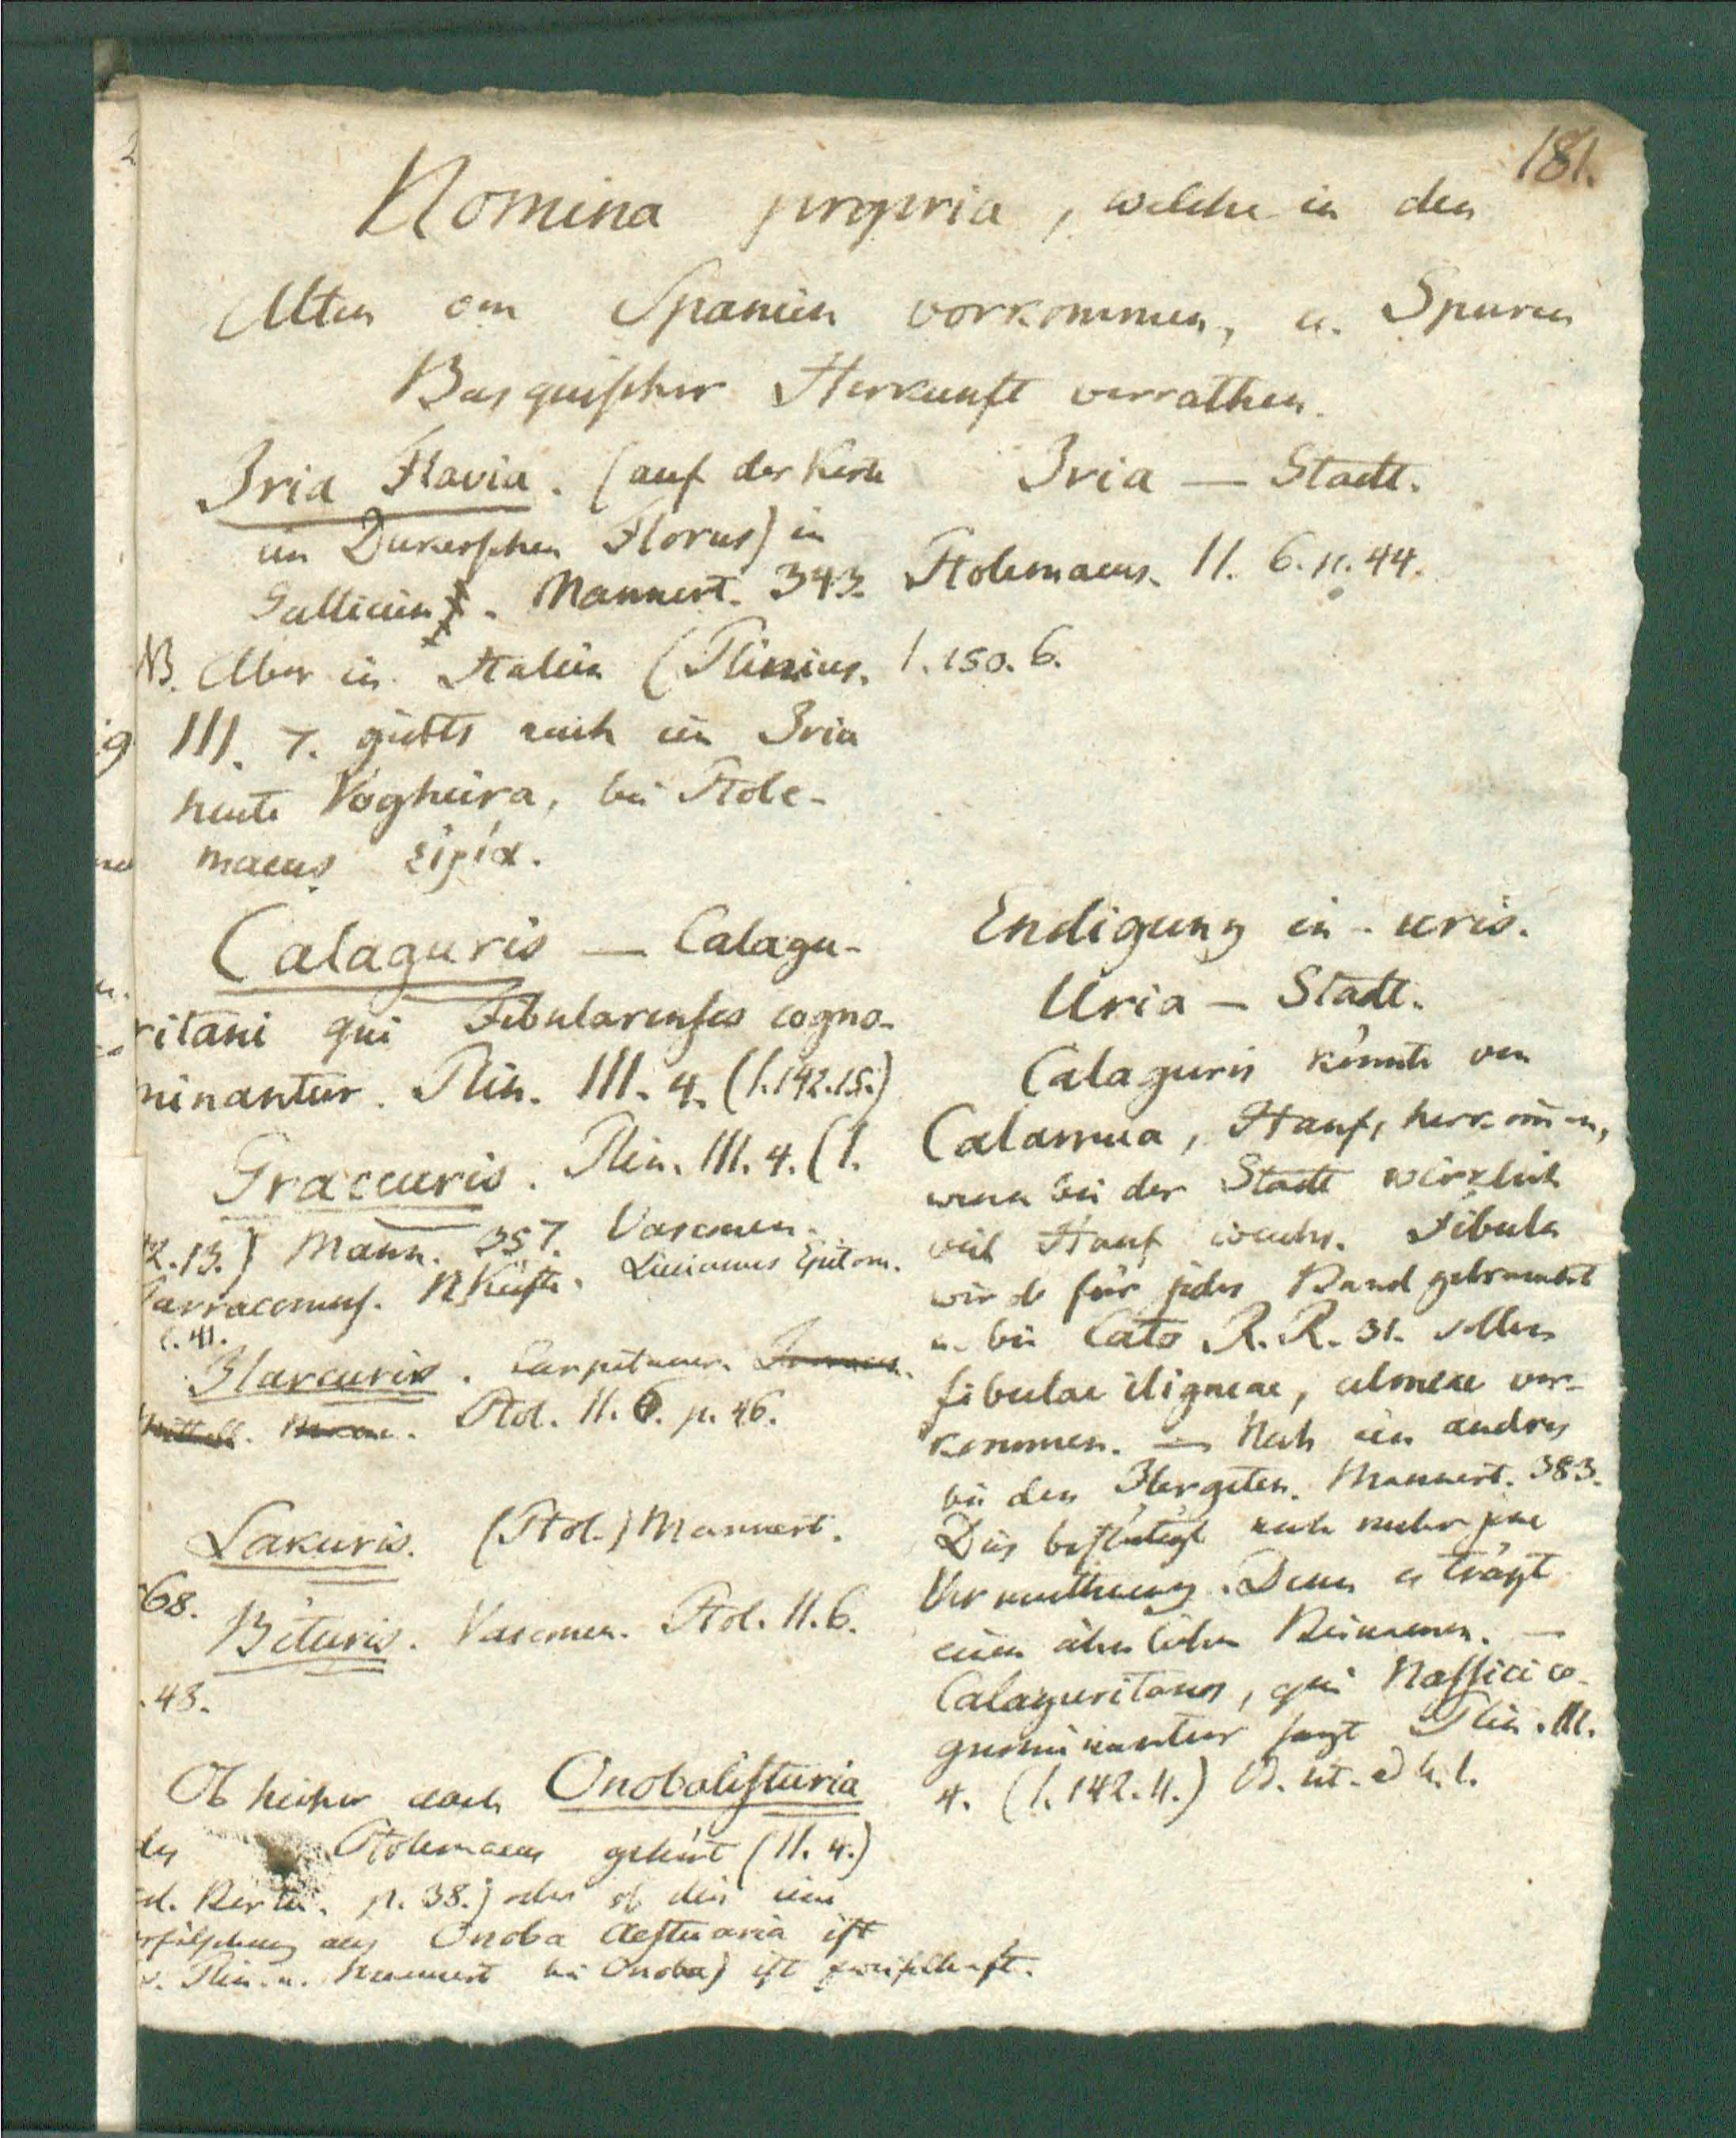 181.
Nomina propria, welche in den
Alten von Spanien vorkommen, u. Spuren
Basquischer Herkunft verrathen.
Iria Flavia. (auf der Karte
im Dukerschen Florus) in
Gallicien. Mannert. 343.
NB. Aber in Italien (Plinius.
III. 7. giebts auch ein Iria
heute Voghiera, bei Ptole-
maeus Εἰρία.
Calaguris — Calagu-
ritani qui Fibularenses cogno-
minantur. Plin. III. 4. (1.142.15.)
Graccuris. Plin. III. 4. (1.
42.13.) Mann. 357. Vasconen.
Tarraconens. NKüste. Livianus Epitom.
c. 41.
Ilarcuris. Carpetaner.
Ptol. II. 6. p. 46.
Lakuris. (Ptol.) Mannert.
68.
Bituris. Vasconen. Ptol. II. 6.
.43.
Ob hieher auch Onobalisturia
des Ptolemaeus gehört (II. 4.)
ed. Bertii. p. 38.) oder ob dies eine
erfälschung aus Onoba Aestuaria ist
v. Plin. u. Mannert bei Onoba) ist zweifelhaft.
Iria — Stadt.
Ptolemaeus. II. 6. p. 44.
1.150. 6.
Endigung in - uris.
Uria — Stadt.
Calaguris könnte von
Calamua, Hanf, herkommen,
wenn bei der Stadt wirklich
viel Hanf wuchs. Fibula
wird für jedes Band gebraucht
u. bei Cato R. R. 31. sollen
fibulae iligneae, ulmeae vor-
kommen. — Noch ein andres
bei den Ilergeten. Mannert. 383.
Dies bestätigt noch mehr jene
Vermuthung. Denn es trägt
einen ähnlichen Beinamen. —
Calaguritanos, qui Nassici co-
gnominantur sagt Plin. III.
4. (1.142.11.) ad h. l.